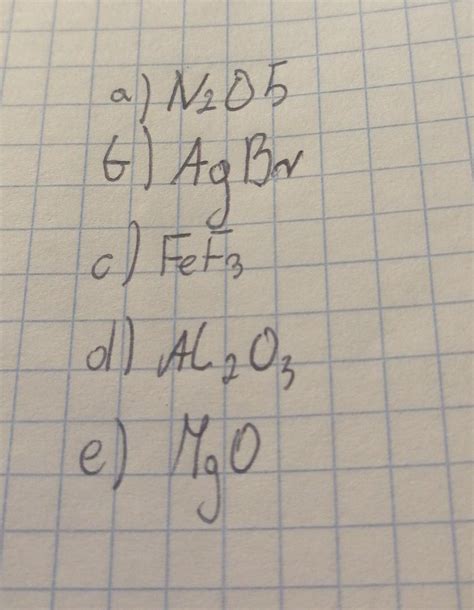 a) N₂O5
б) AgBr
c) FeF₃
d) Al₂O₃
e) MgO